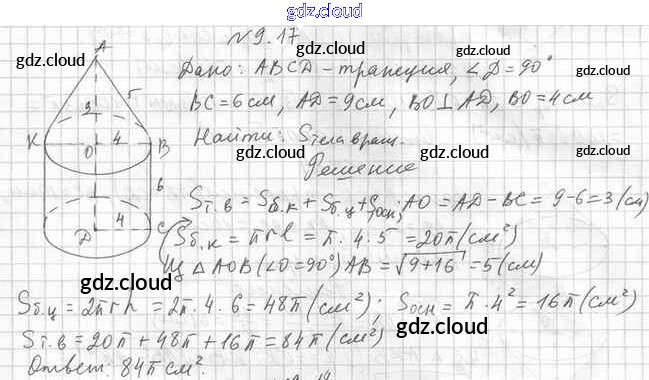 gdz.cloud
N9.17
gdz.cloud
gdz.cloud
Дано: ABCD - трапеция, ∠D = 90°
BC = 6 см, AD = 9 см, BO ⊥ AD, BO = 4 см
Найти: Sтела вращ.
gdz.cloud
gdz.cloud
Решение
Sт.в = Sб.к + Sб.ц + Sосн; AO = AD - BC = 9 - 6 = 3 (см)
gdz.cloud
Sб.к = πrl = π · 4 · 5 = 20π (см²)
Из △AOB (∠O = 90°) AB = √9+16 = 5 (см)
gdz.cloud
gdz.cloud
Sб.ц = 2πrh = 2π · 4 · 6 = 48π (см²); Sосн = π · 4² = 16π (см²)
gdz.cloud
Sт.в = 20π + 48π + 16π = 84π (см²)
gdz.cloud
Ответ: 84π см².
A
3
5
K
O
4
B
6
D
4
C